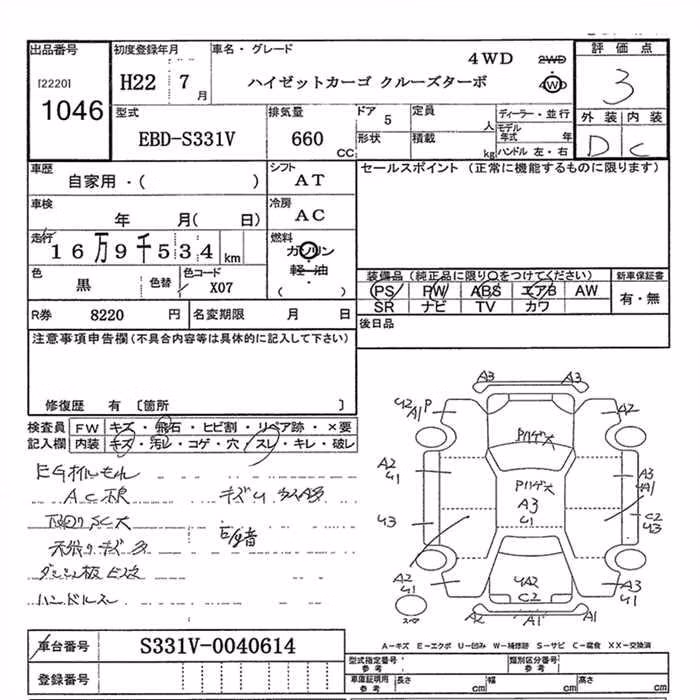 出品番号 初度登録年月 車名・グレード 評価点
[2220] 1046
H22 7月
4WD 2WD 4WD
ハイゼットカーゴ クルーズターボ
3
型式 EBD-S331V
排気量 660 CC
ドア 5 定員 人
形状 積載 kg
ディーラー・並行
モデル年式 年
ハンドル 左・右
外装 内装
D C
車歴 自家用・( )
シフト AT
セールスポイント (正常に機能するものに限ります)
車検 年 月( 日)
冷房 AC
走行 16万9千534 km
燃料 ガソリン
軽油
( )
色 黒 色替 色コード X07
装備品 (純正品に限り○をつけてください) 新車保証書
PS PW ABS エアB AW 有・無
SR ナビ TV カワ
R券 8220 円 名変期限 月 日
後日品
注意事項申告欄 (不具合内容等は具体的に記入して下さい)
修復歴 有 〔箇所 〕
検査員 FW キズ・飛石・ヒビ割・リペア跡・×要
記入欄 内装 キズ・汚レ・コゲ・穴・スレ・キレ・破レ
EGオイルもれ
下回りSC大
ハンドルスレ
A3 A3
A1 P A2
A2 A3
A3
U3 C2
A2 A3
U1 U1
C2
A2 A1 A1
スペア
A-キズ E-エクボ U-凹み W-補修跡 S-サビ C-腐食 XX-交換済
車台番号 S331V-0040614
型式指定番号 参考 類別区分番号 参考
登録番号
車庫証明用 参考 長さ cm 幅 cm 高さ cm